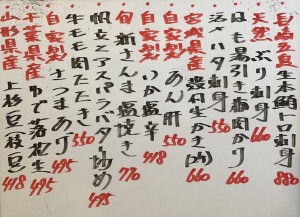 長崎五島 生本鮪トロ刺身 880
天然 ぶり刺身 660
はも湯引き梅肉かけ 660
活〆ハタ刺身 660
宮城県産 殻付生かき(2ヶ) 660
自家製 あん肝 550
自家製 いか塩辛 418
旬 新さんま塩焼き 770
帆立とアスパラバター炒め 495
牛モモ肉たたき 550
自家製 さつまあげ 495
千葉県産 ゆで落花生 495
山形県産 上杉豆枝豆 418